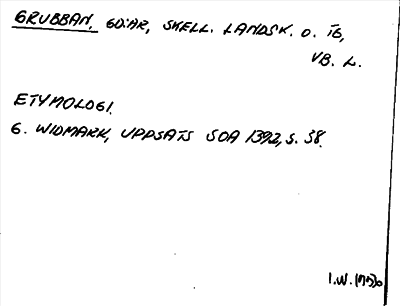 GRUBBAN, GD:AR, SKELL. LANDSK. O. TG,
VB. L.
ETYMOLOGI.
G. WIDMARK, UPPSATS SOA 1392, S. 38.
I.W. (1975)